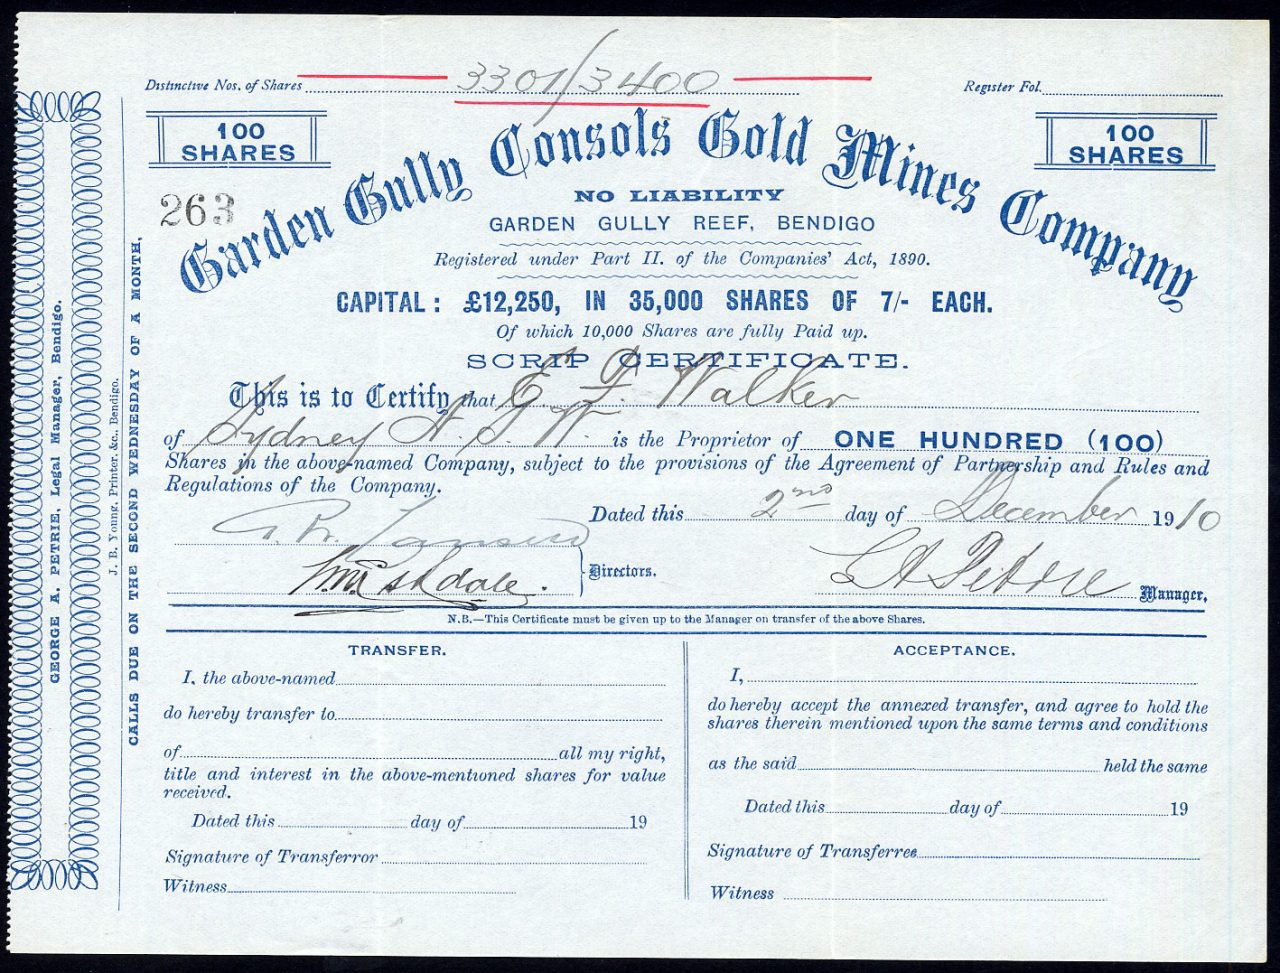 Distinctive Nos. of Shares 3301/3400
Register Fol.
100 SHARES
100 SHARES
263
Garden Gully Consols Gold Mines Company
NO LIABILITY
GARDEN GULLY REEF, BENDIGO
Registered under Part II. of the Companies' Act, 1890.
CAPITAL: £12,250, IN 35,000 SHARES OF 7/- EACH.
Of which 10,000 Shares are fully Paid up.
SCRIP CERTIFICATE.
This is to Certify that E. F. Walker
of Sydney N. S. W. is the Proprietor of ONE HUNDRED (100)
Shares in the above-named Company, subject to the provisions of the Agreement of Partnership and Rules and
Regulations of the Company.
Dated this 2nd day of December 1910
Directors.
Manager,
N.B.—This Certificate must be given up to the Manager on transfer of the above Shares.
TRANSFER.
I, the above-named
do hereby transfer to
of all my right,
title and interest in the above-mentioned shares for value
received.
Dated this day of 19
Signature of Transferror
Witness
ACCEPTANCE.
I,
do hereby accept the annexed transfer, and agree to hold the
shares therein mentioned upon the same terms and conditions
as the said held the same
Dated this day of 19
Signature of Transferree
Witness
GEORGE A. PETRIE, Legal Manager, Bendigo.
J. B. Young, Printer, &c., Bendigo.
CALLS DUE ON THE SECOND WEDNESDAY OF A MONTH,